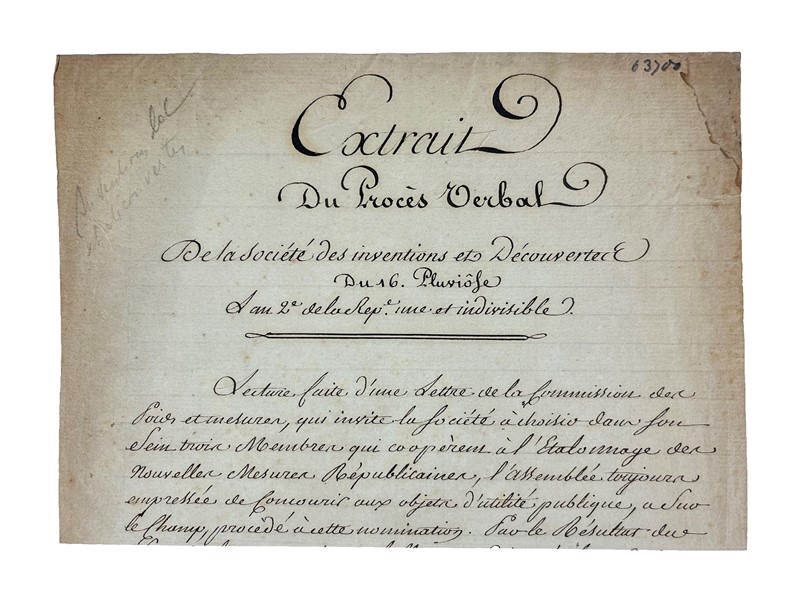 63700
Extrait
Du Procès Verbal
De la Société des inventions et Découvertes
Du 16. Pluviôse
L'an 2e. de la Rep.e une et indivisible.
Lecture faite d'une Lettre de la Commission des
Poids et mesures, qui invite la Société à choisir dans son
Sein trois Membres qui coopèrent à l'Etalonnage des
Nouvelles Mesures Républicaines, l'assemblée toujours
empressée de Concourir aux objets d'utilité publique, a Sur
le Champ, procédé à cette nomination. Par le Résultat du